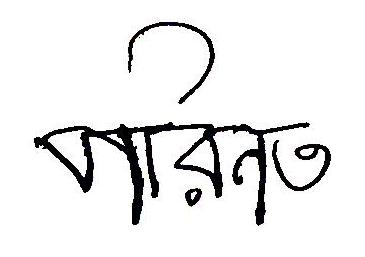 পরিনত